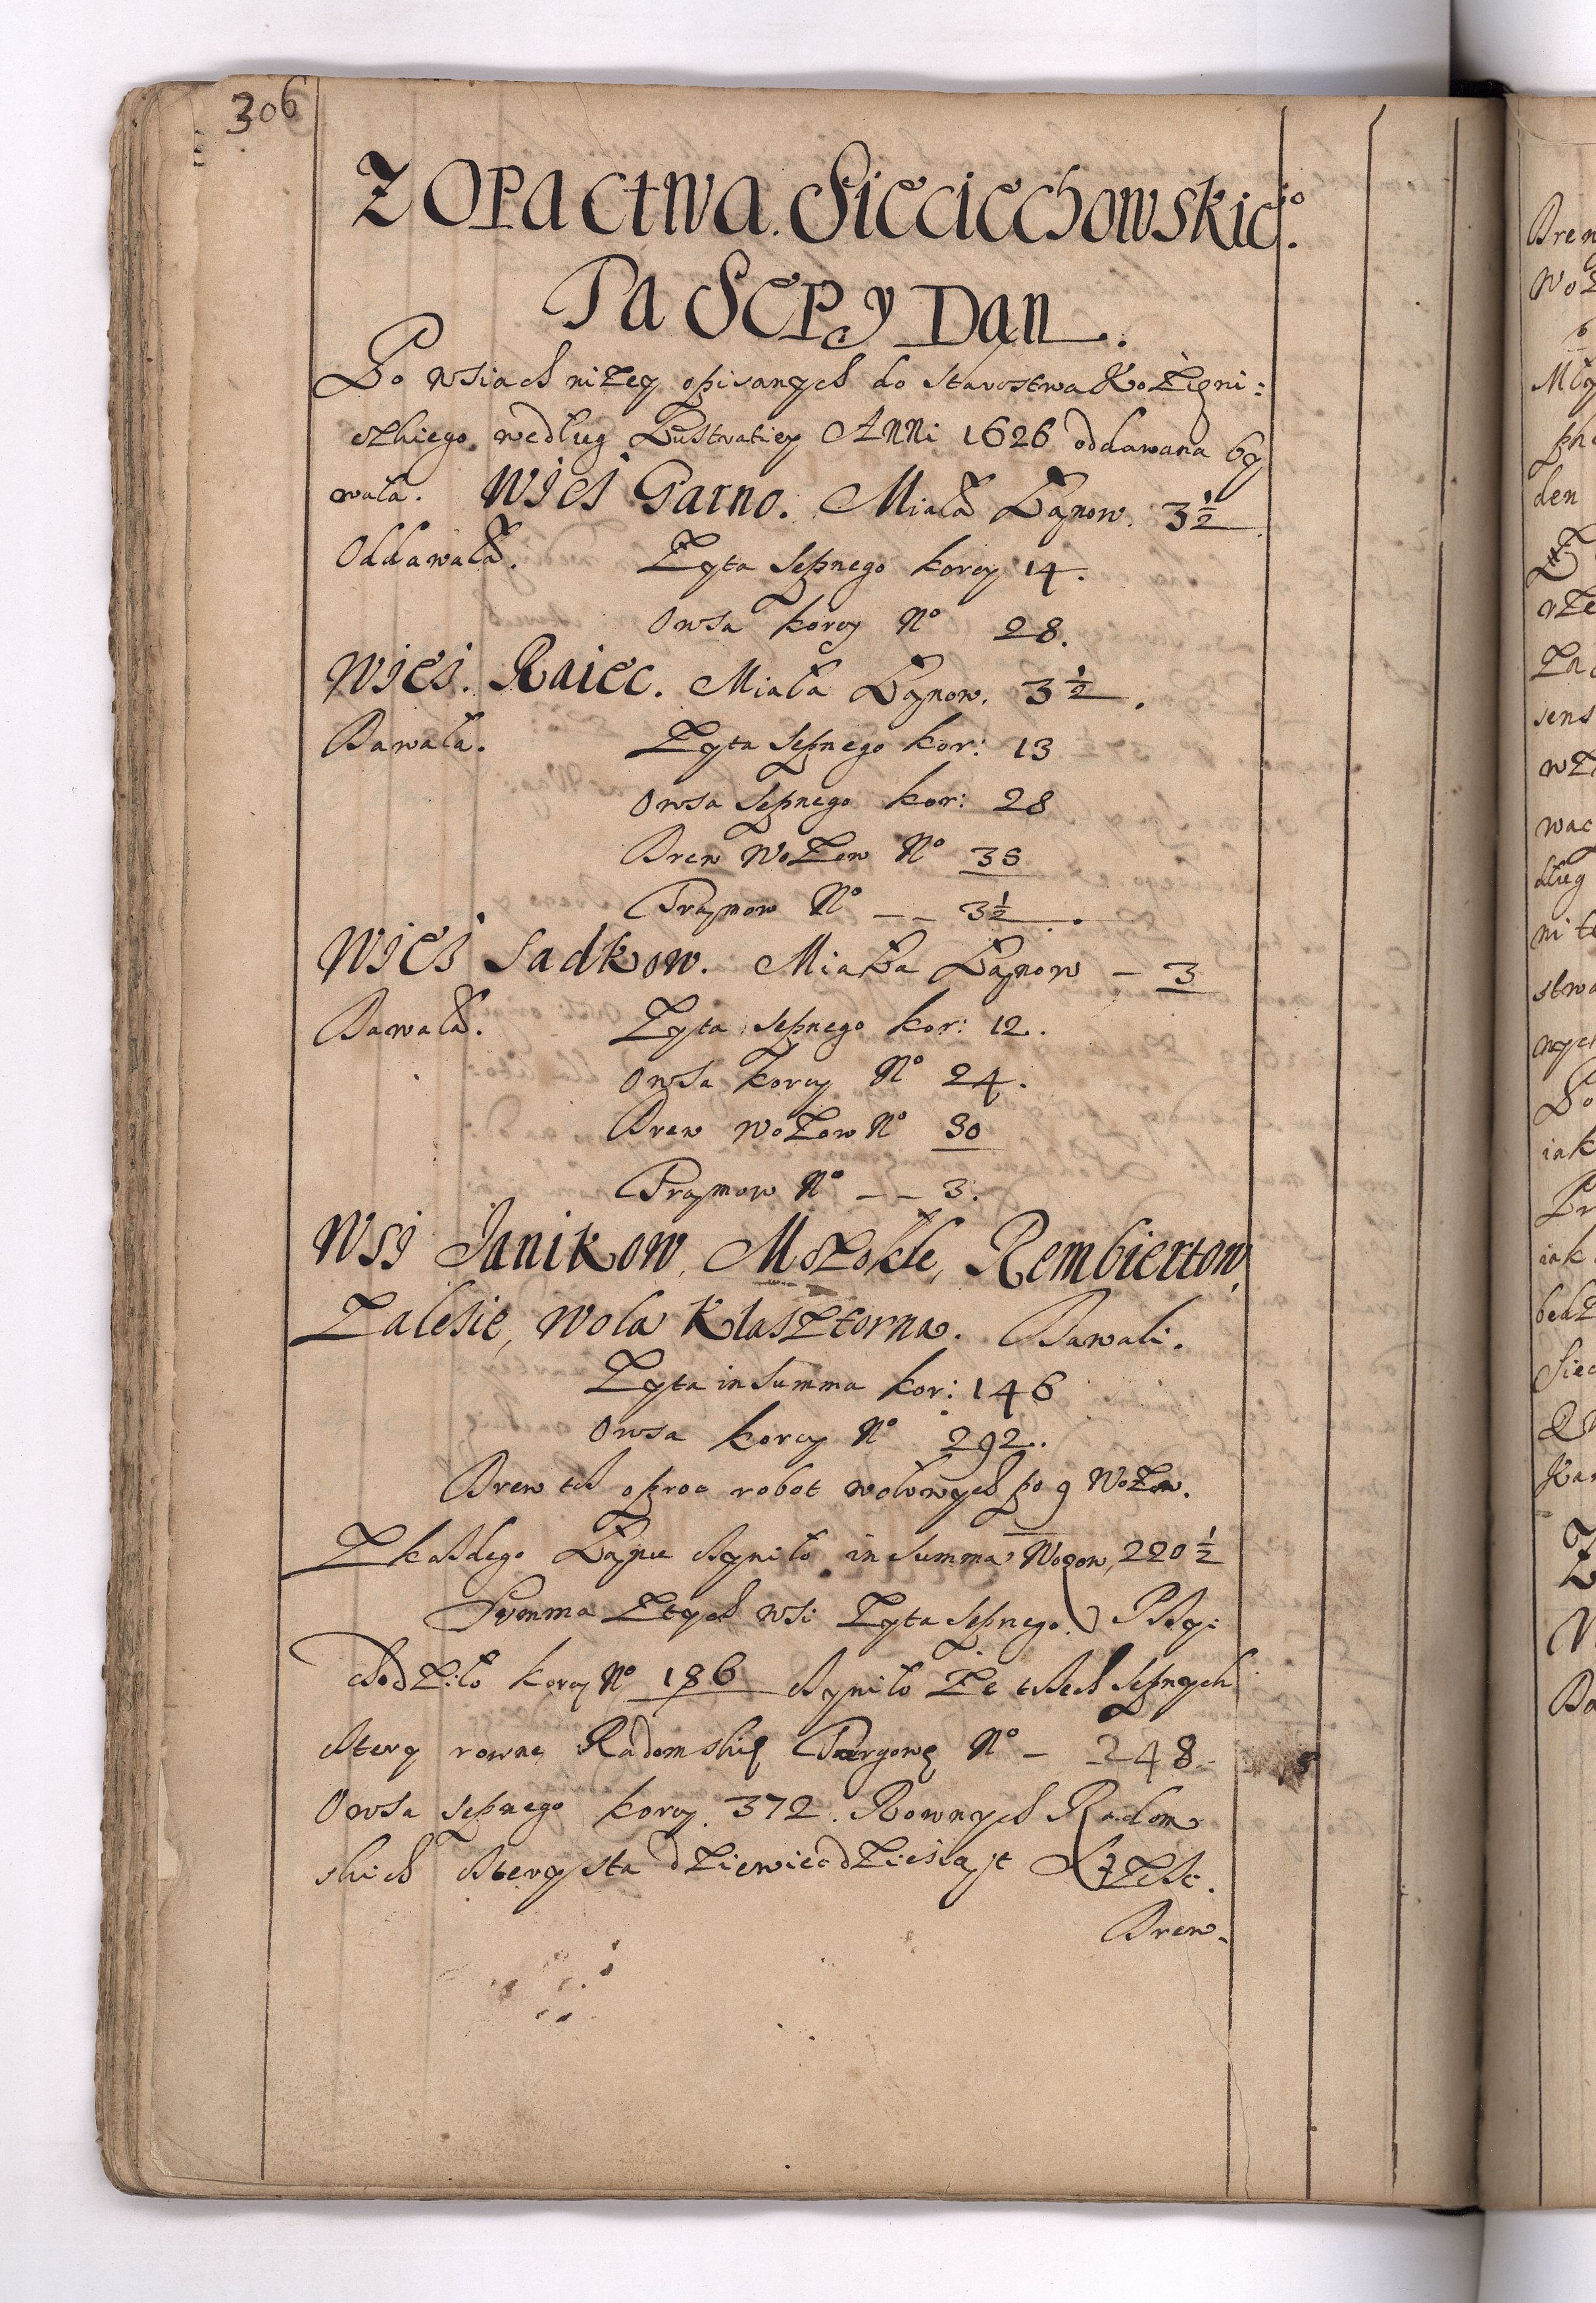 306
Z Opactwa. Sieciechowskieio.
Ta Sepy Dan.
Po wsiach niżey opisanych do Starostwa Kozieni:
czkiego według Lustratiey Anni 1626 oddawana by
wała. Wieś Garno. Miała Łanow. 3½
Oddawała. Żyta sepnego korcy 14.
Owsa korcy No 28.
Wieś. Raiec. Miała Łanow. 3½.
Dawała. Żyta sepnego kor: 13
Owsa sepnego kor: 28
Drew Wozow No 35
Praymow No – – 3½.
Wieś Sadkow. Miała Łanow – 3
Dawała. Żyta sepnego kor: 12.
Owsa korcy No 24.
Drew wozow No 30
Praymow No – – 3.
Wsi Janikow, Mozolle, Rembiertow,
Zalesie, Wola Klasztorna. Dawali.
Żyta in Summa kor: 146
Owsa korcy No 292.
Drew też oproc robot wołowych po 9 Wozow.
Z każdego Łanu czyniło in Summa Wozow, 220½
Summa Z tych wsi Żyta sepnego Przy:
chodziło korcy No 186 czyniło Ze trzech sepnych
cztery rowne Radomskię Targowę No – 248.
Owsa sepnego korcy. 372. Rownych Radom
skich czterysta dziewiecdziesiąt
Drew.